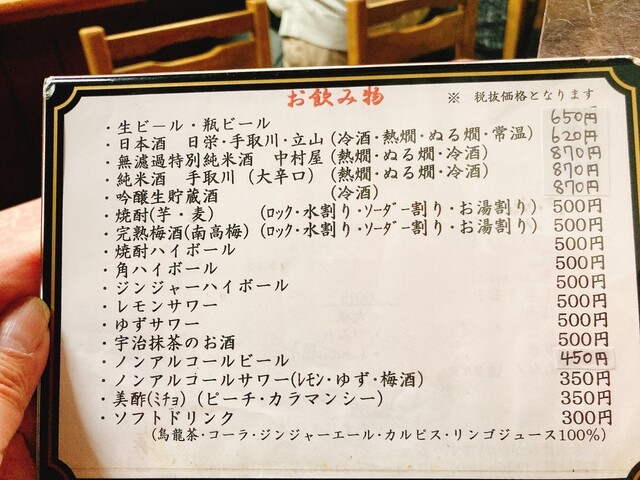 お飲み物 ※ 税抜価格となります
・生ビール・瓶ビール 650円
・日本酒 日栄・手取川・立山(冷酒・熱燗・ぬる燗・常温) 620円
・無濾過特別純米酒 中村屋(熱燗・ぬる燗・冷酒) 870円
・純米酒 手取川(大辛口)(熱燗・ぬる燗・冷酒) 870円
・吟醸生貯蔵酒 (冷酒) 870円
・焼酎(芋・麦) (ﾛｯｸ・水割り・ｿｰﾀﾞｰ割り・お湯割り) 500円
・完熟梅酒(南高梅) (ﾛｯｸ・水割り・ｿｰﾀﾞｰ割り・お湯割り) 500円
・焼酎ハイボール 500円
・角ハイボール 500円
・ジンジャーハイボール 500円
・レモンサワー 500円
・ゆずサワー 500円
・宇治抹茶のお酒 500円
・ノンアルコールビール 450円
・ノンアルコールサワー(ﾚﾓﾝ・ゆず・梅酒) 350円
・美酢(ﾐﾁｮ)(ピーチ・カラマンシー) 350円
・ソフトドリンク 300円
(烏龍茶・コーラ・ジンジャーエール・カルピス・リンゴジュース100%)